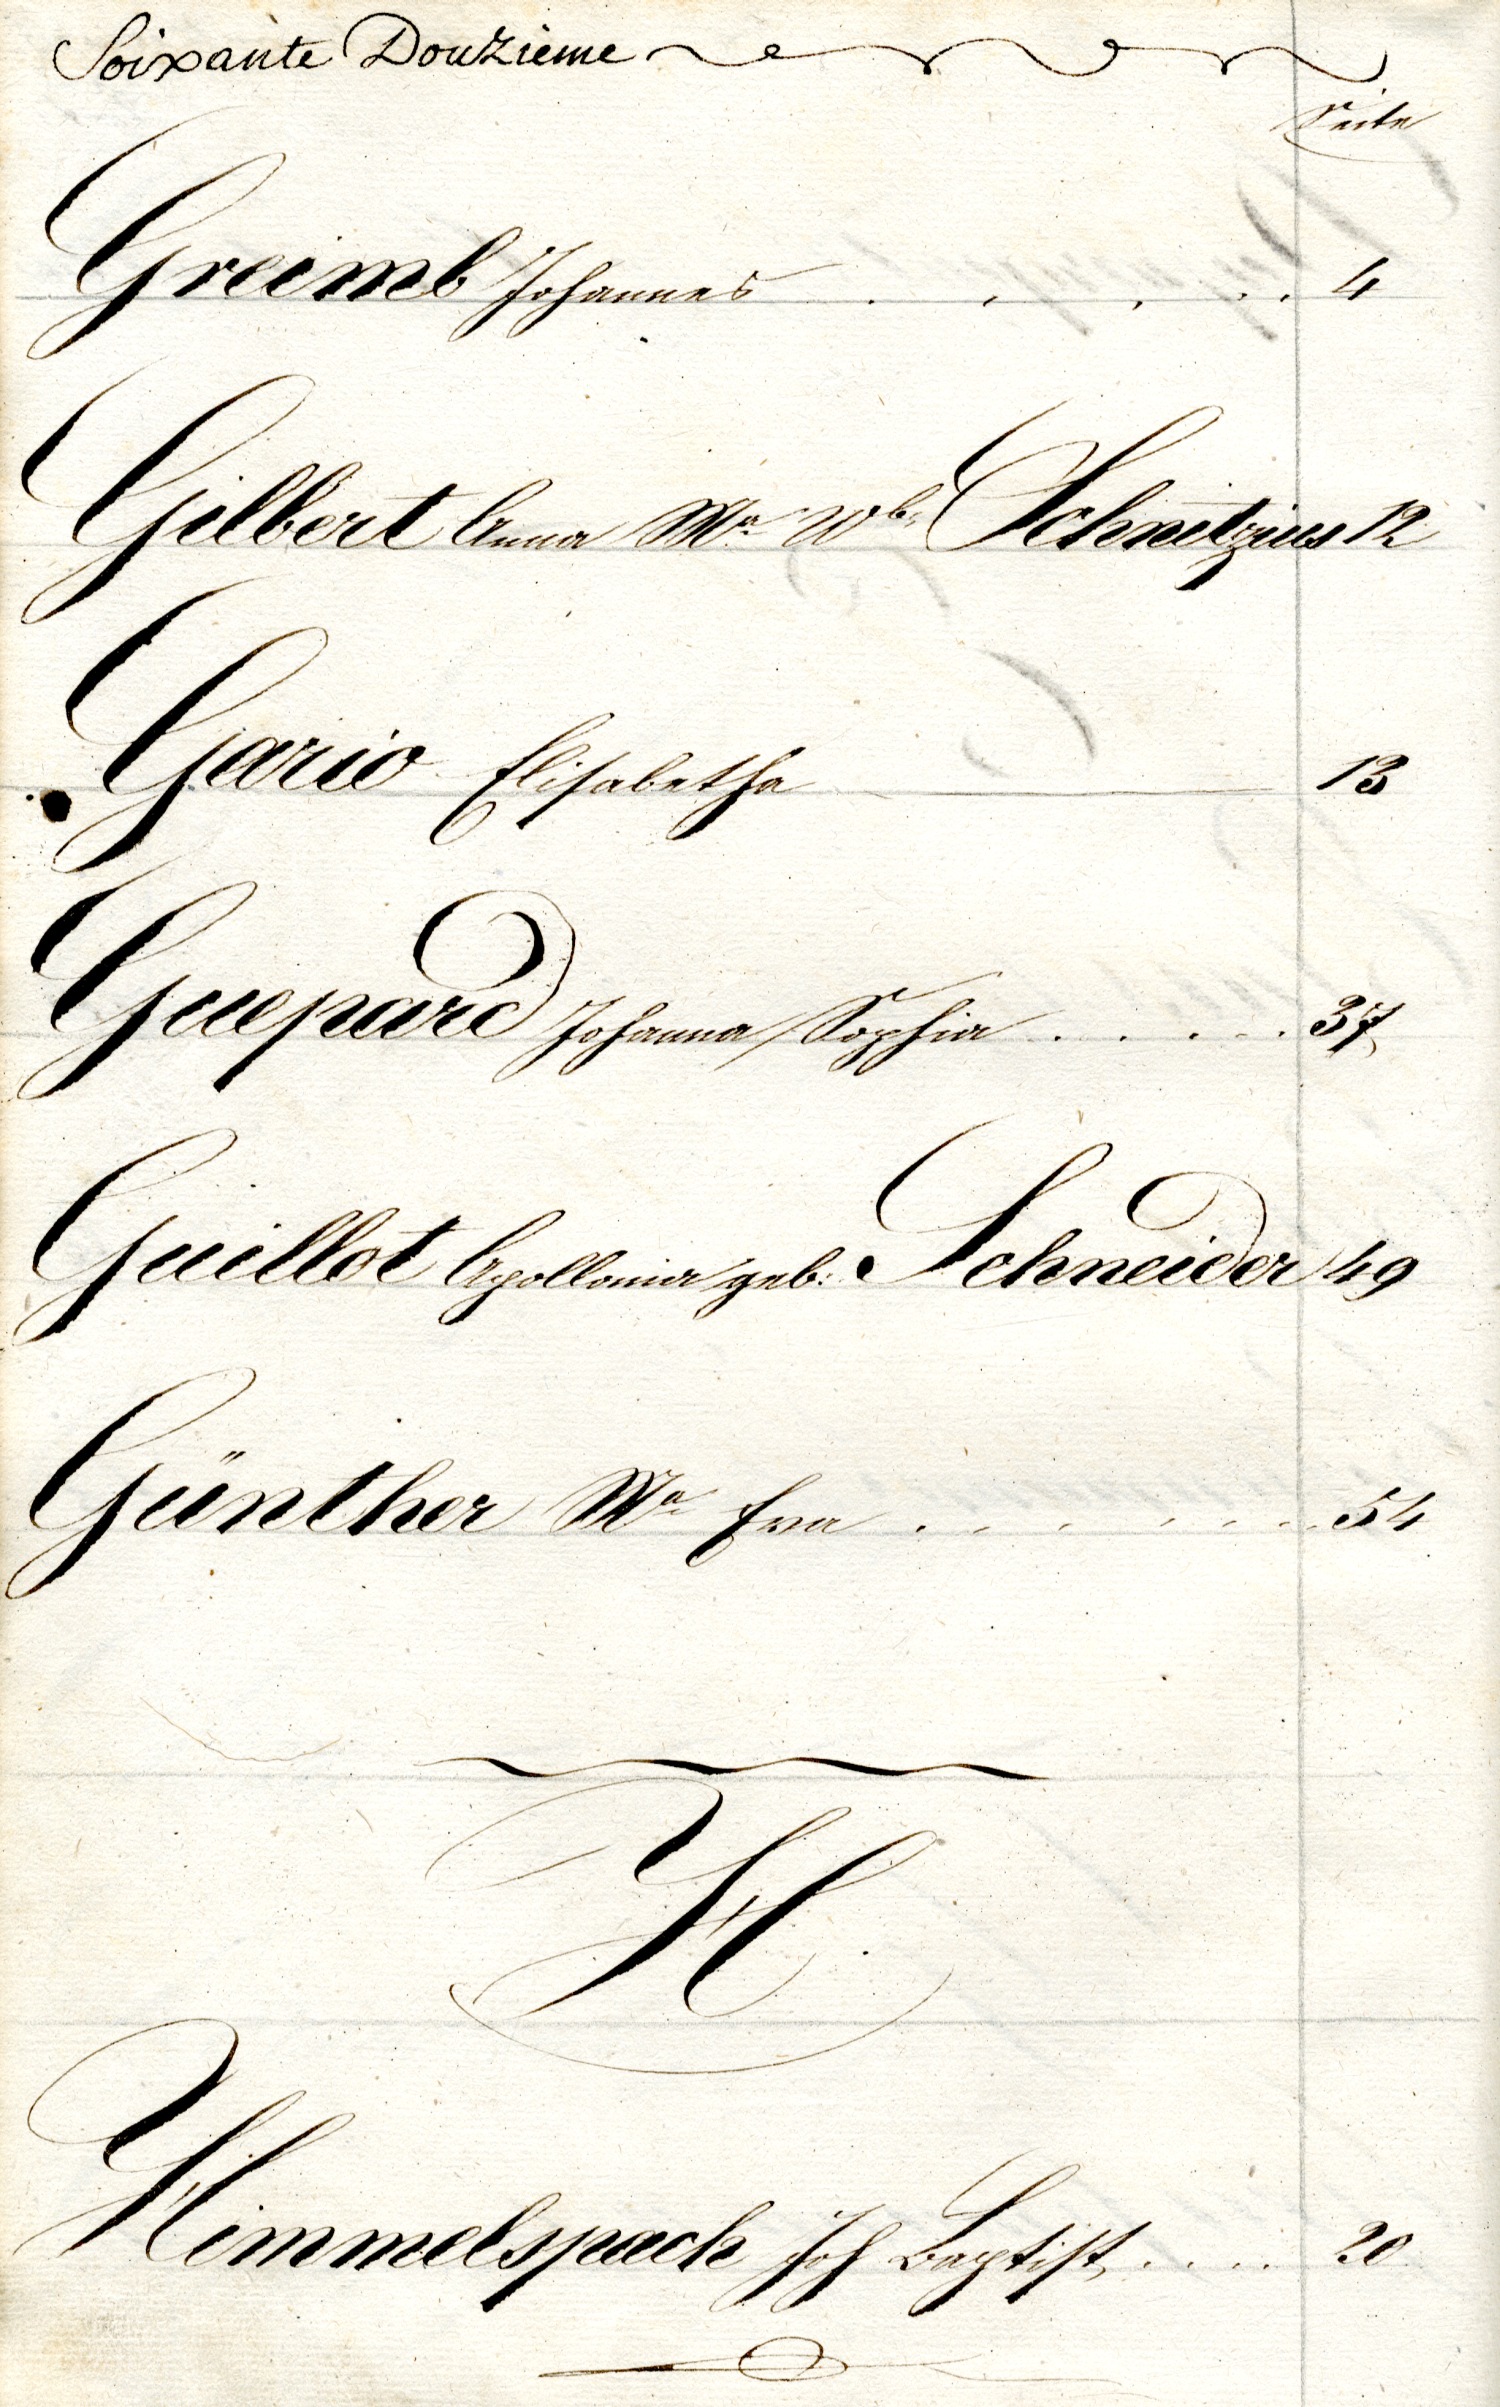 Soixante Douzième
Seite
Greimb Johannes . . . . . 4
Gilbert Anna Ma Wb. Schnitzius 12
Gario Elisabetha 13
Guepard Johanna Sophia . . . . . 37
Guillot Apollonia geb: Schneider 49
Günther Ma Eva . . . . . . . 54
H
Himmelspach Joh Baptist . . . . 20